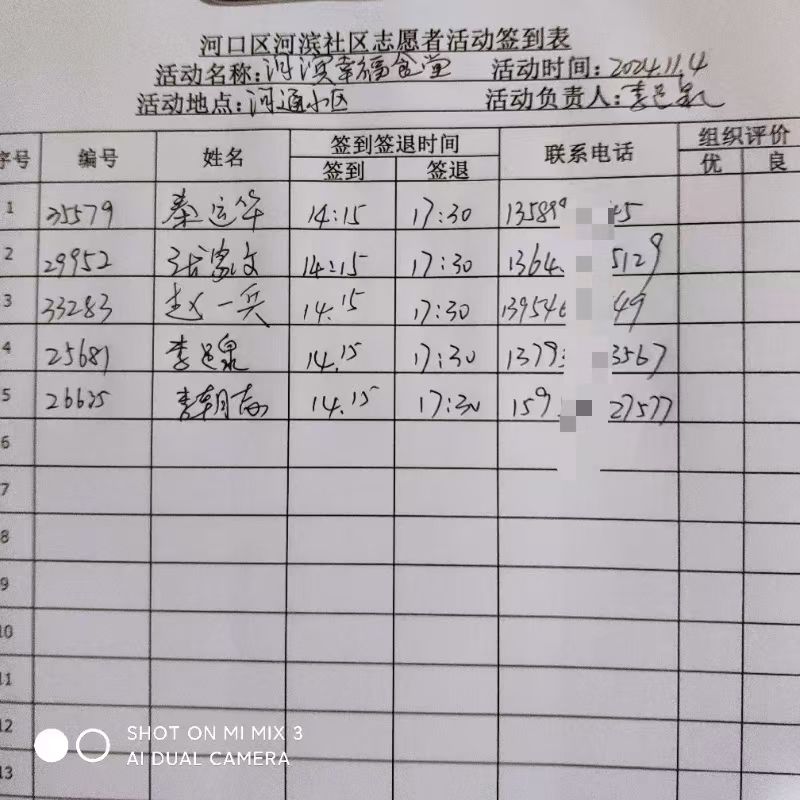 河口区河滨社区志愿者活动签到表
活动名称:河滨幸福食堂 活动时间:2024.11.4
活动地点:河通小区 活动负责人:李邑泉
序号 编号 姓名 签到签退时间 联系电话 组织评价
签到 签退 优 良
1 35579 秦运华 14:15 17:30 13589 5
2 29952 张家文 14:15 17:30 1364 5129
3 33283 赵一兵 14.15 17:30 139546 49
4 25681 李邑泉 14.15 17:30 1379 3567
5 26635 14.15 17:30 159 27577
6
7
8
9
10
11
12
13
SHOT ON MI MIX 3
AI DUAL CAMERA